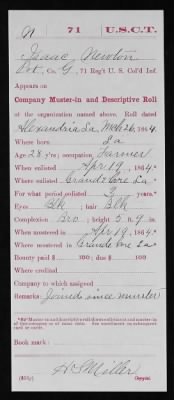 N 71 U.S.C.T.
Isaac Newton
Pvt, Co. G, 71 Reg't U. S. Col'd Inf.
Appears on
Company Muster-in and Descriptive Roll
of the organization named above. Roll dated
Alexandria La, Mch 26, 1864.
Where born La
Age 28 y'rs; occupation Farmer
When enlisted Apr 19, 1864.
Where enlisted Grand Core La
For what period enlisted 3 years.
Eyes Blk; hair Blk
Complexion Bro; height 5 ft. 9 in.
When mustered in Apr 19, 1864.
Where mustered in Grand Core La
Bounty paid $ 100; due $ 100
Where credited
Company to which assigned
Remarks: Joined since muster
Book mark:
Copyist.